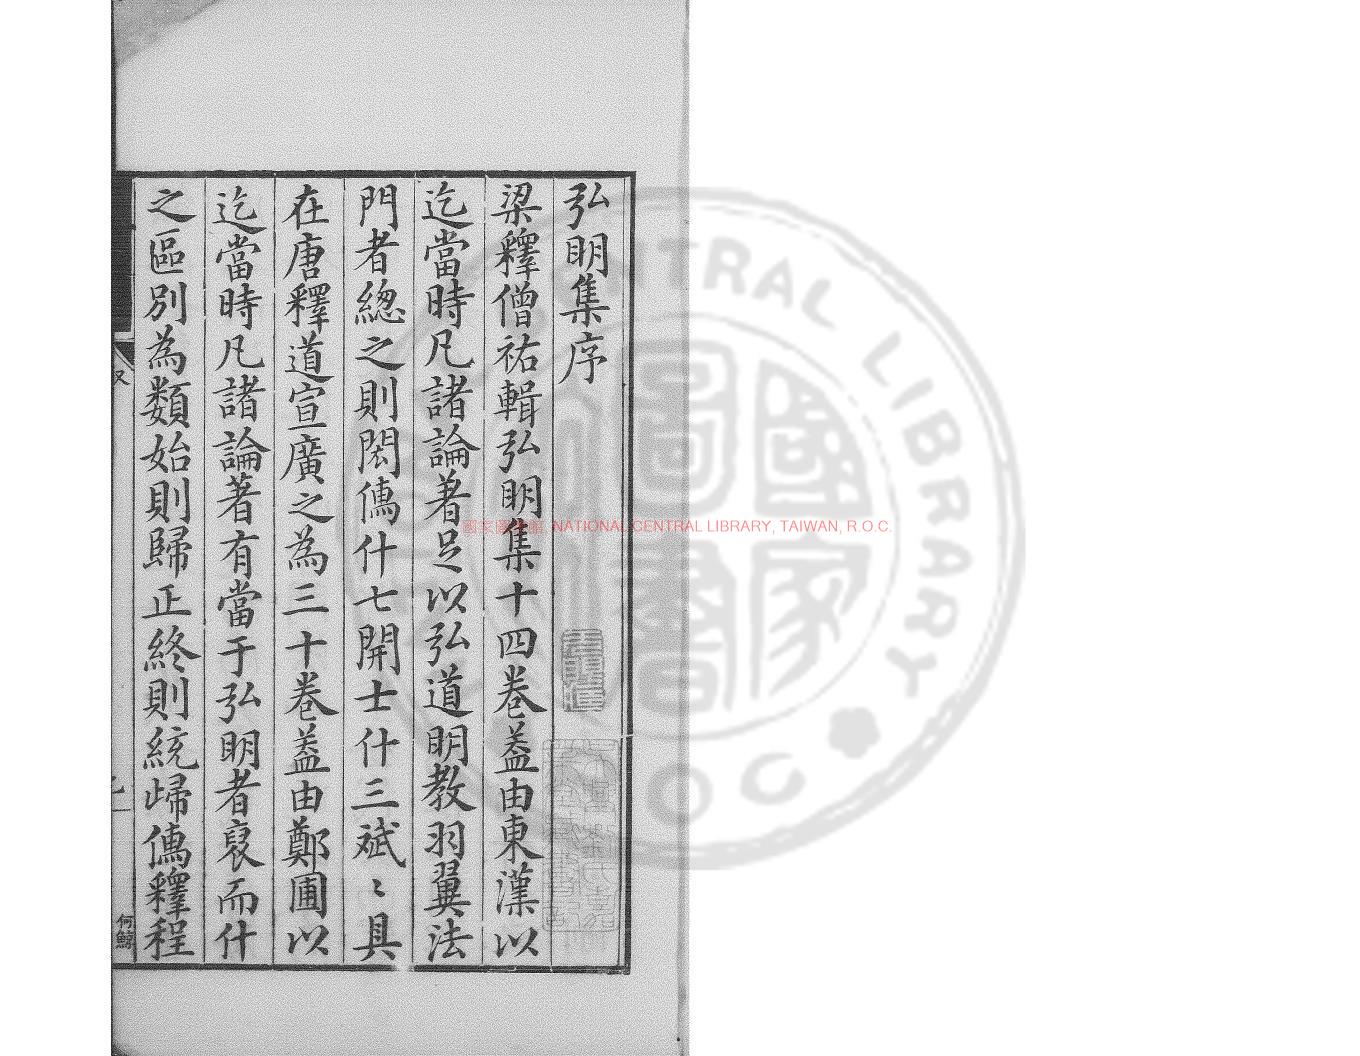 弘明集序
梁釋僧祐輯弘明集十四卷葢由東漢以
迄當時凡諸論著足以弘道明教羽翼法
門者緫之則閎傳什七開士什三斌〻具
在唐釋道宣廣之為三十卷葢由鄭圃以
迄當時凡諸論著有當于弘明者裒而什
之區別為類始則歸正終則統歸傳釋程
何鯨
國家圖書館, NATIONAL CENTRAL LIBRARY, TAIWAN, R.O.C.
CENTRAL LIBRARY